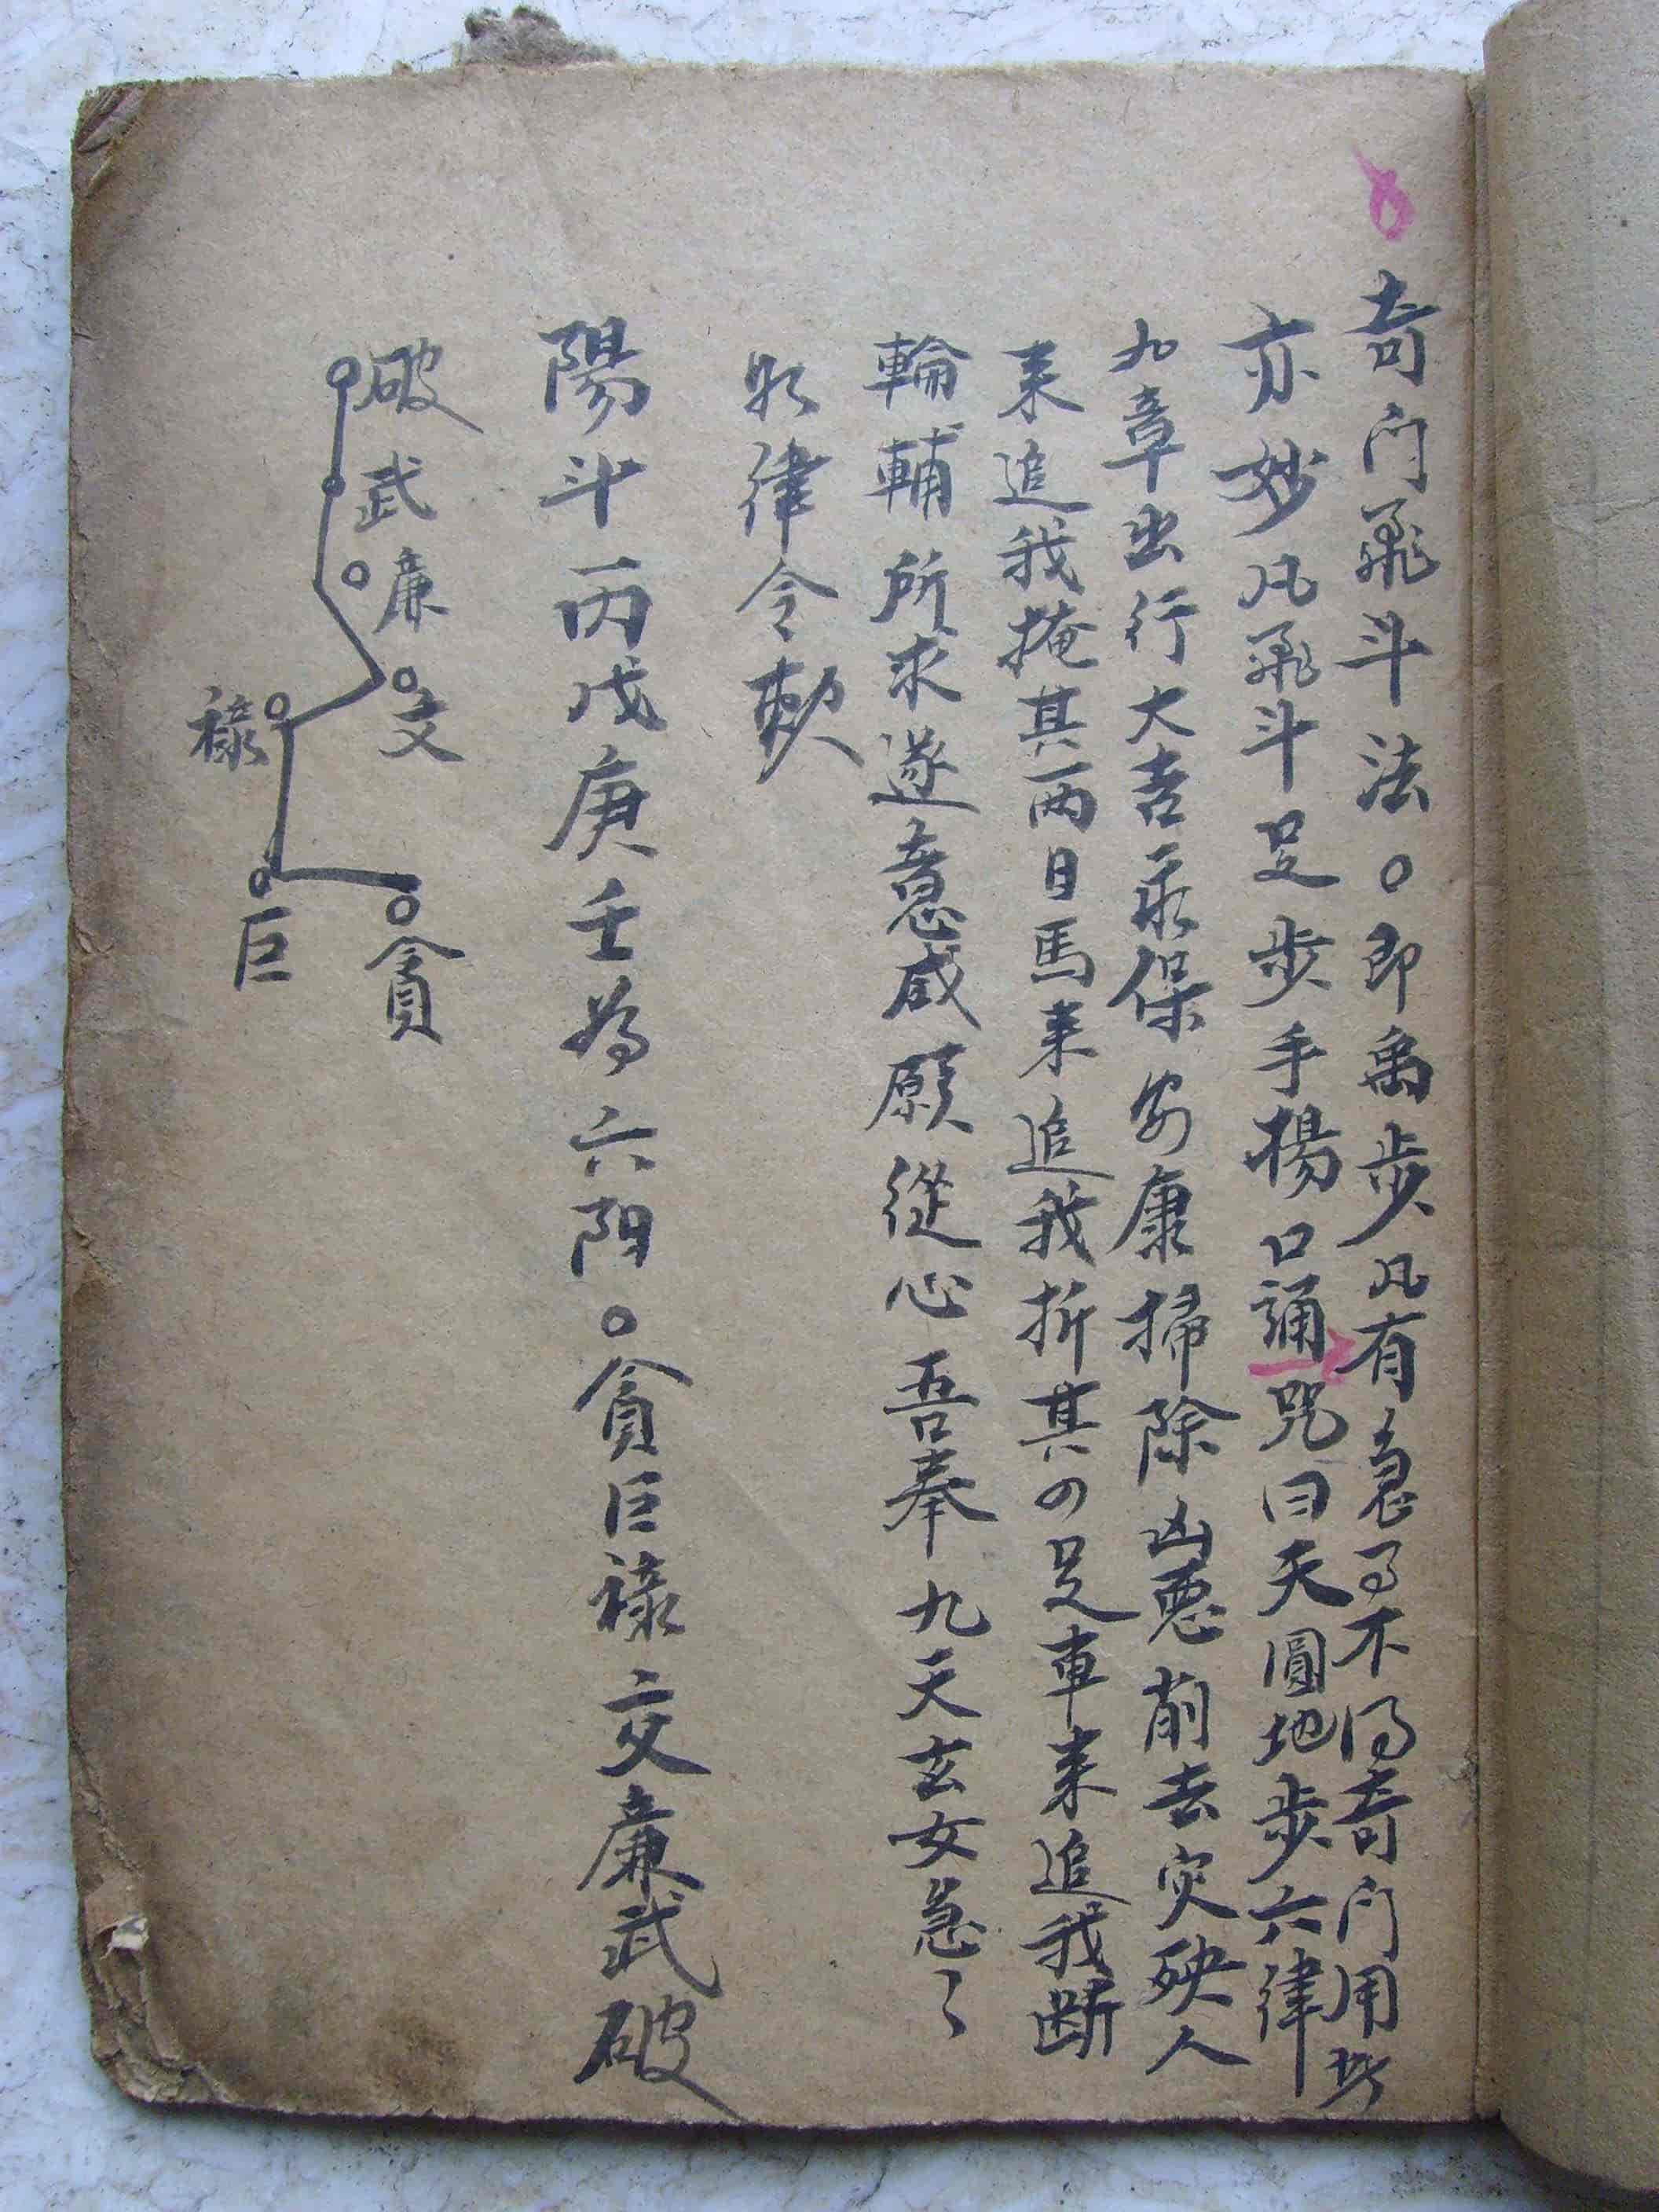 奇门飛斗法。即禹步凡有急了不得奇门用此
亦妙凡飛斗足步手揚口誦咒曰天圓地步六律
九章出行大吉永保安康掃除凶惡前去灾殃人
来追我掩其两日馬来追我折其四足車来追我断
輪輔所求遂意咸願從心吾奉九天玄女急々
如律令敕
陽斗丙戊庚壬為六阳。貪巨祿文廉武破
破武廉文
祿
巨
貪